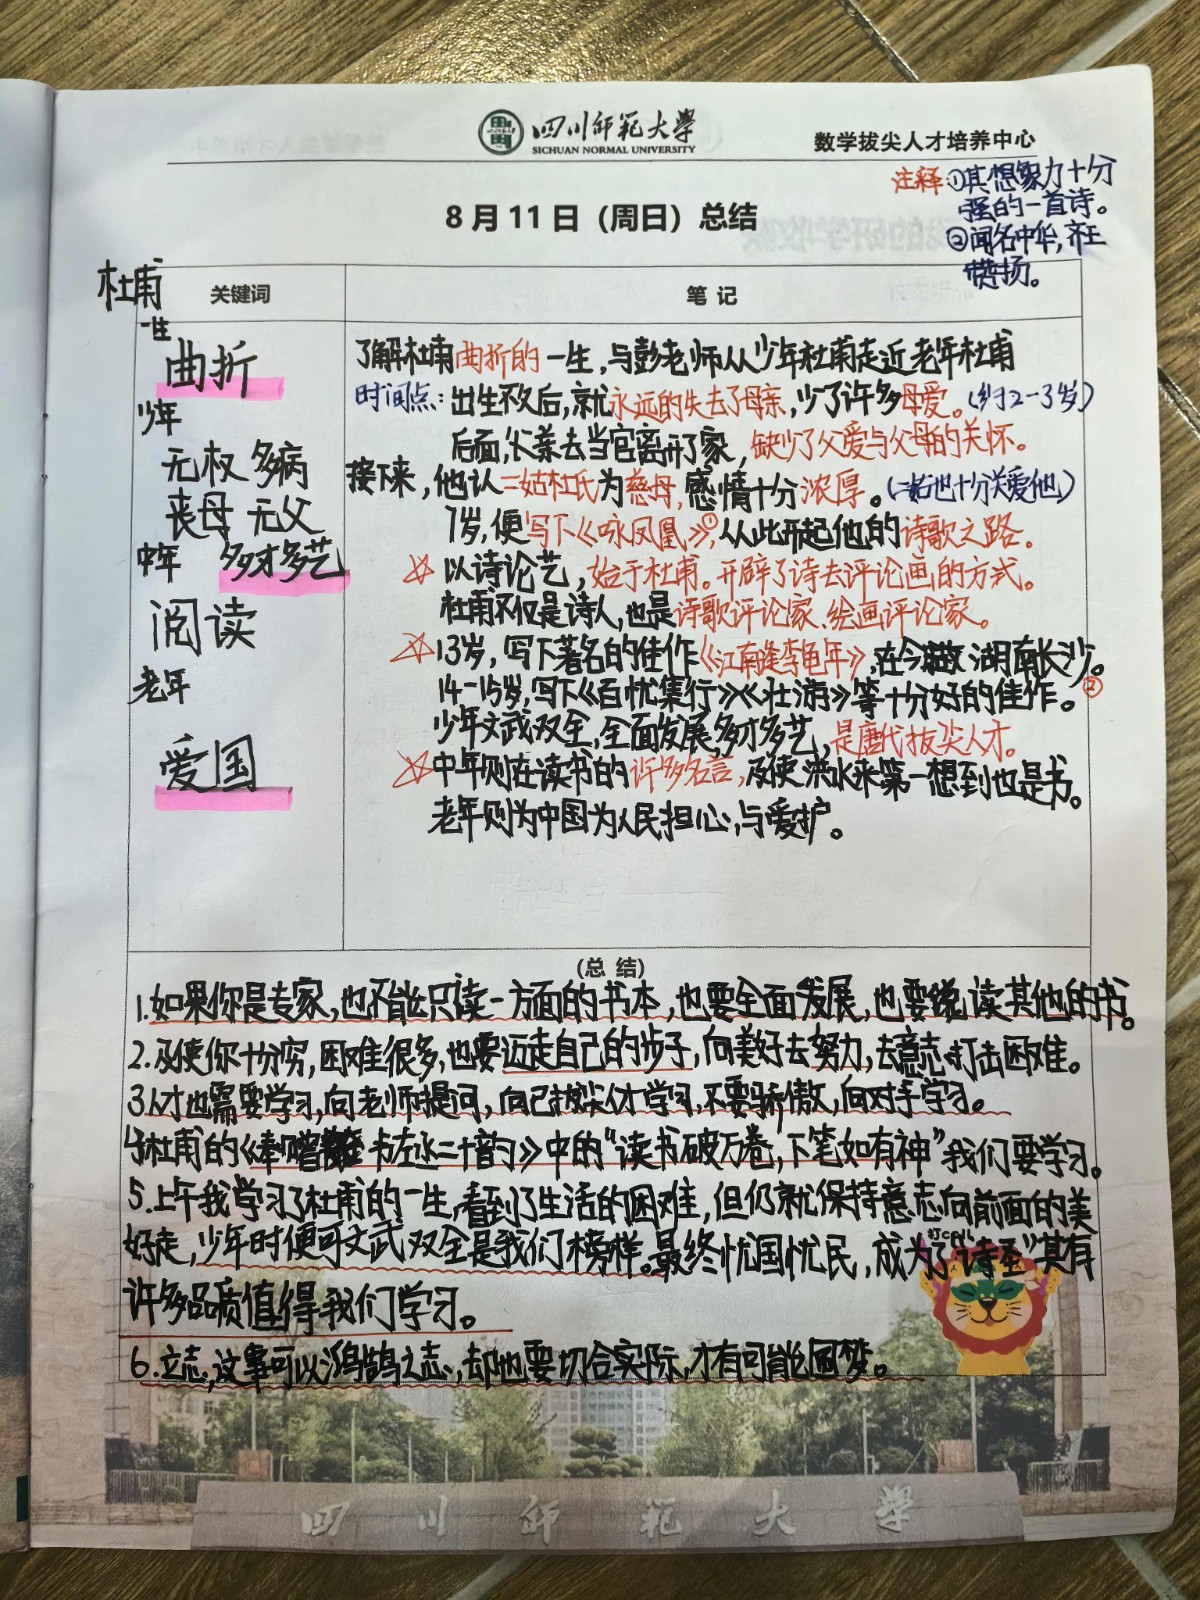 四川师范大学
SICHUAN NORMAL UNIVERSITY
数学拔尖人才培养中心
注释①其想象力十分
强的一首诗。
②闻名中华,齐王
赞扬。
8月11日(周日)总结
杜甫
一生
关键词
笔记
曲折
少年
无权多病
丧母 无父
中年 多才多艺
阅读
老年
爱国
了解杜甫曲折的一生,与彭老师从少年杜甫走近老年杜甫
时间点:出生不久后,就永远的失去了母亲,少了许多母爱。(约2-3岁)
后面,父亲去当官离开了家,缺少了父爱与父母的关怀。
接下来,他认二姑杜氏为慈母,感情十分浓厚。(二姑也十分关爱他)
7岁,便写下《咏凤凰》①,从此开起他的诗歌之路。
☆以诗论艺,始于杜甫。开辟了诗去评论画的方式。
杜甫不仅是诗人,也是诗歌评论家、绘画评论家。
☆13岁,写下著名的佳作《江南逢李龟年》,在今湖南长沙。
14-15岁,写下《百忧集行》《壮游》等十分好的佳作。②
少年文武双全,全面发展,多才多艺,是唐代拔尖人才。
☆中年则在读书的许多名言,及使洪水来第一想到也是书。
老年则为中国为人民担心,与爱护。
(总结)
1.如果你是专家,也不能只读一方面的书本,也要全面发展,也要读其他的书。
2.及使你十分穷,困难很多,也要迈走自己的步子,向美好去努力,去意志打击困难。
3人才也需要学习,向老师提问,向己拔尖人才学习,不要骄傲,向对手学习。
4杜甫的《奉赠韦左丞二十韵》中的“读书破万卷,下笔如有神”我们要学习。
5.上午我学习了杜甫的一生,看到了生活的困难,但仍就保持意志向前面的美
好走,少年时便可文武双全是我们榜样。最终忧国忧民,成为了“诗圣”其有
许多品质值得我们学习。
6.立志,这事可以鸿鹄之志,却也要切合实际,才有可能圆梦。
四川师范大学